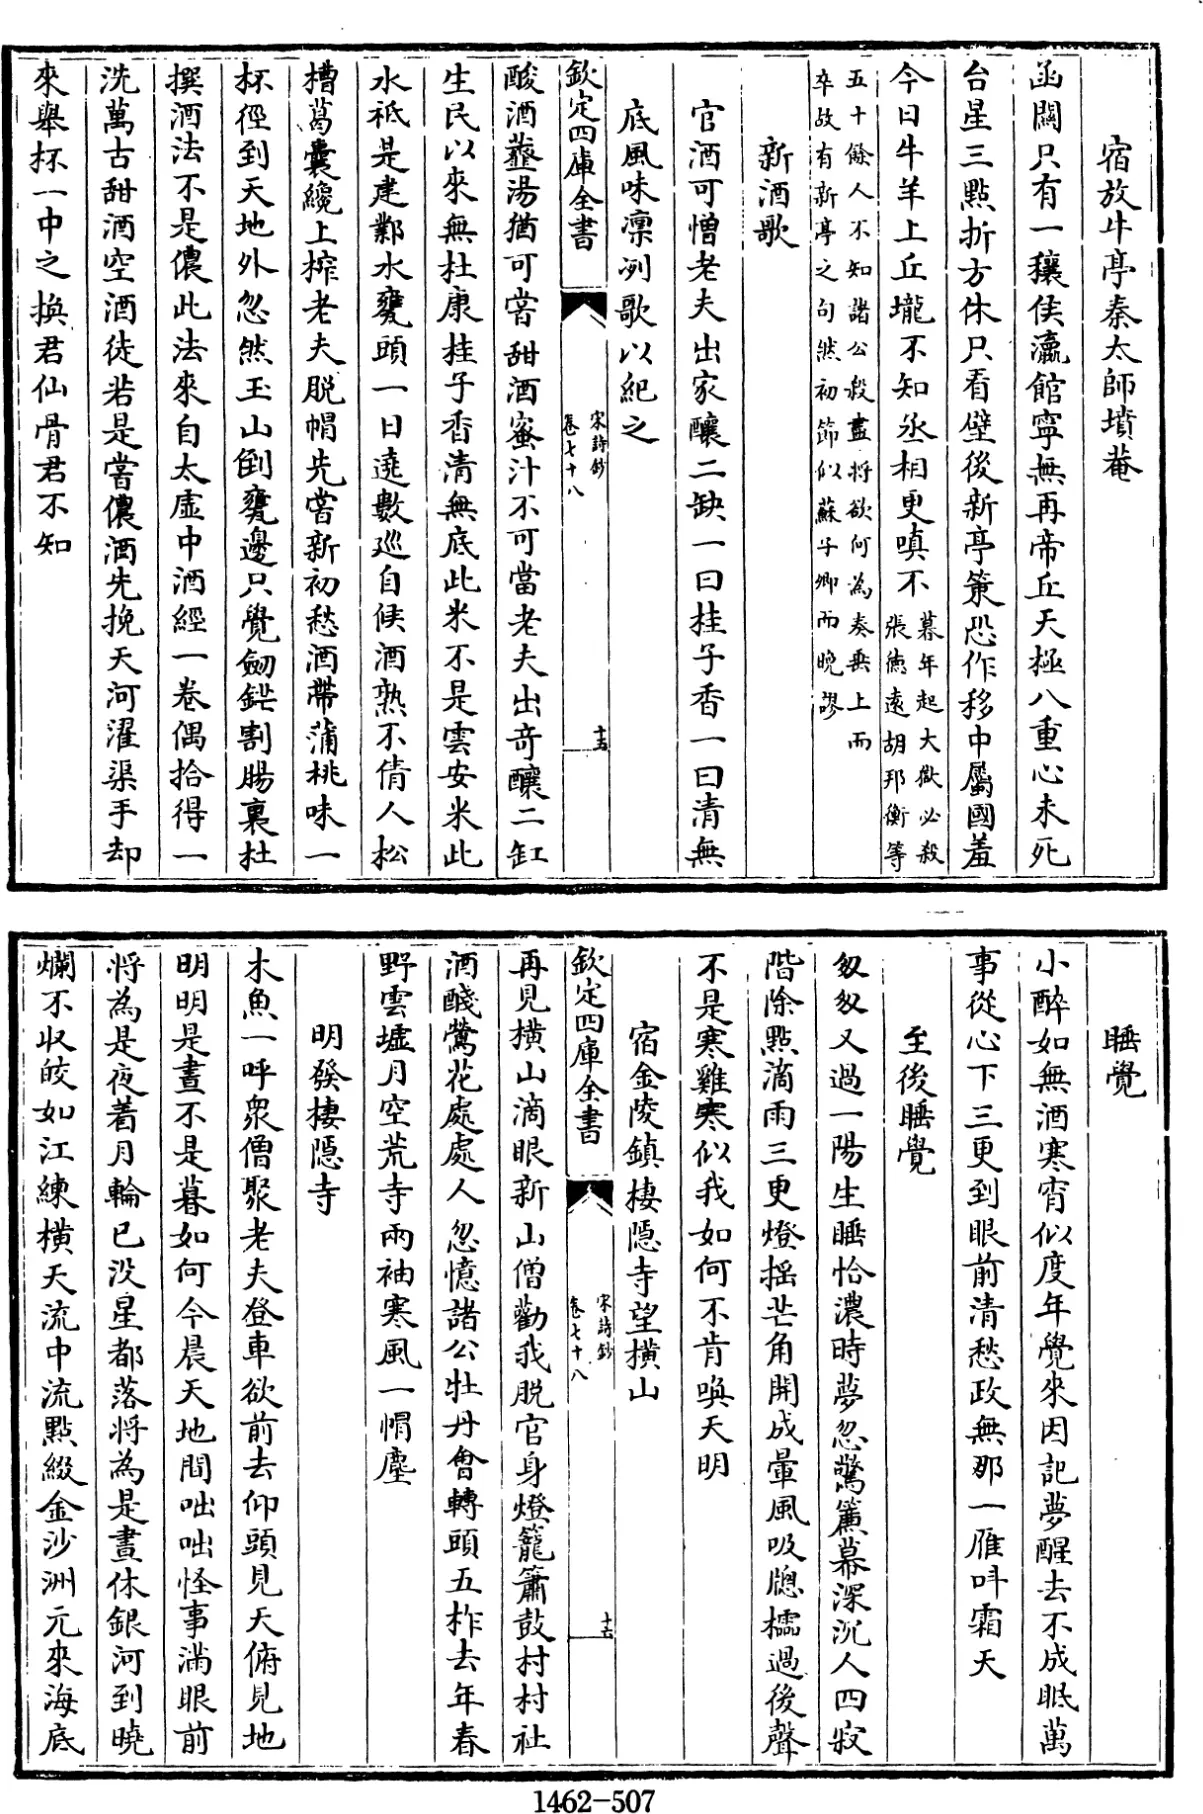 宿放牛亭秦太師墳菴
函關只有一穰侯瀛館寧無再帝丘天極八重心未死
台星三點折方休只看壁後新亭策恐作移中屬國羞
今日牛羊上丘壠不知丞相更嗔不
暮年起大獄必殺
張德遠胡邦衡等
五十餘人不知諸公殺盡將欲何為奏垂上而
卒故有新亭之句然初節似蘇子卿而晚謬
新酒歌
官酒可憎老夫出家釀二缺一曰桂子香一曰清無
底風味凛冽歌以紀之
欽定四庫全書
宋詩鈔
卷七十八
十五
酸酒虀湯猶可嘗甜酒蜜汁不可當老夫出奇釀二缸
生民以來無杜康桂子香清無底此米不是雲安米此
水祗是建鄴水甕頭一日遶數巡自候酒熟不倩人松
槽葛囊纔上榨老夫脱帽先嘗新初愁酒帶蒲桃味一
杯徑到天地外忽然玉山倒甕邊只覺劒鋩割腸裏杜
撰酒法不是儂此法來自太虛中酒經一卷偶拾得一
洗萬古甜酒空酒徒若是嘗儂酒先挽天河濯渠手却
來舉杯一中之換君仙骨君不知
睡覺
小醉如無酒寒宵似度年覺來因記夢醒去不成眠萬
事從心下三更到眼前清愁政無那一雁呌霜天
至後睡覺
匆匆又過一陽生睡恰濃時夢忽驚簾幕深沉人四寂
階除點滴雨三更燈揺芒角開成暈風吸牕櫺過後聲
不是寒雞寒似我如何不肯喚天明
宿金陵鎮棲隱寺望横山
欽定四庫全書
宋詩鈔
卷七十八
十六
再見横山滴眼新山僧勸我脱官身燈籠簫鼓村村社
酒醆鶯花處處人忽憶諸公牡丹會轉頭五柞去年春
野雲墟月空荒寺兩袖寒風一帽塵
明發棲隱寺
木魚一呼衆僧聚老夫登車欲前去仰頭見天俯見地
明明是晝不是暮如何今晨天地間咄咄怪事滿眼前
將為是夜着月輪已没星都落將為是晝休銀河到曉
爛不收皎如江練横天流中流點綴金沙洲元來海底
1462-507